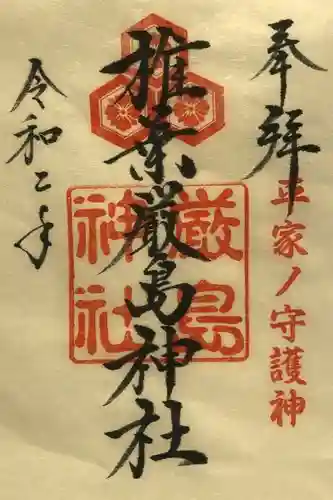 奉拝
平家ノ守護神
雅葉厳島神社
厳島
神社
令和二年